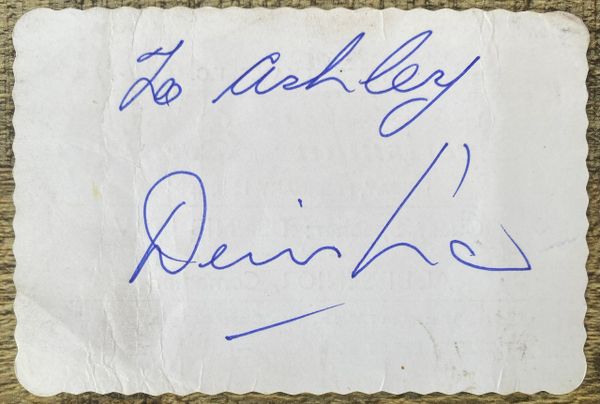 To Ashley
Denis